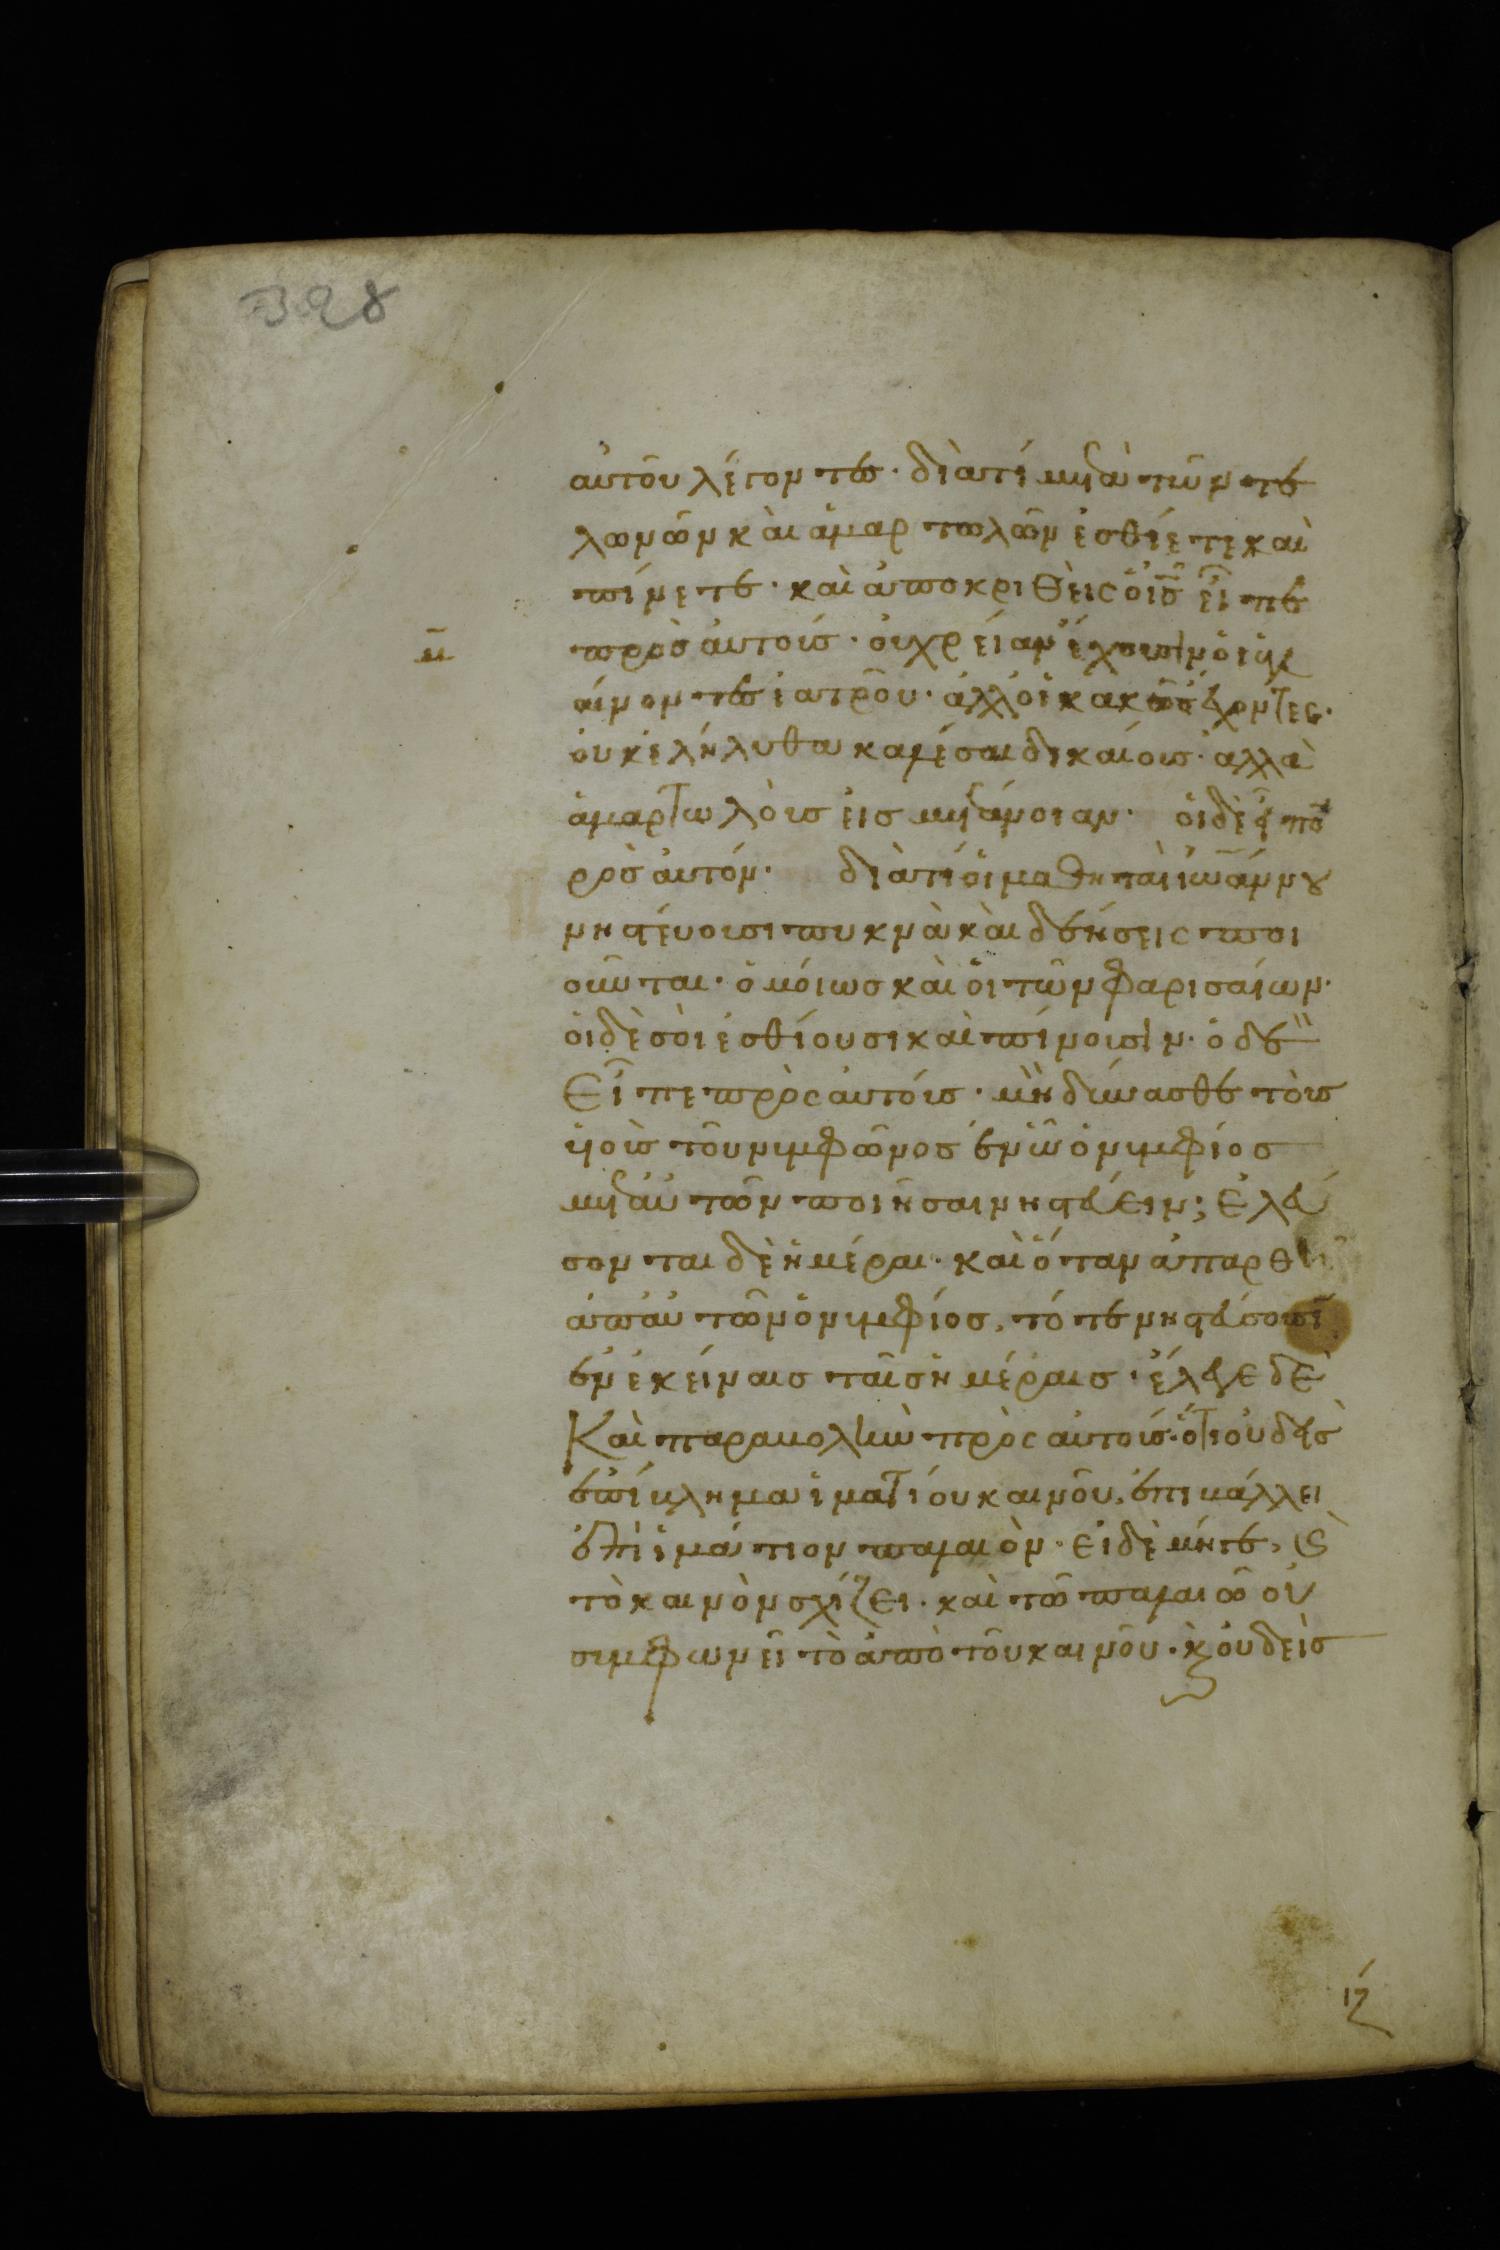 αὐτοῦ λέγοντες· διατί μετὰ τῶν τε
λωνῶν καὶ ἁμαρτωλῶν ἐσθίετε καὶ
πίνετε· καὶ ἀποκριθεὶς ὁ ι̅ς̅ εἶπε
πρὸς αὐτούς· οὐ χρείαν ἔχουσιν οἱ ὑγι
αίνοντες ἰατροῦ· ἀλλ' οἱ κακῶς ἔχοντες·
οὐκ ἐλήλυθα καλέσαι δικαίους· ἀλλὰ
ἁμαρτωλοὺς εἰς μετάνοιαν· οἱ δὲ εἶπον
πρὸς αὐτόν· διατί οἱ μαθηταὶ ἰωάννου
νηστεύουσι πυκνὰ καὶ δεήσεις ποι
οῦνται· ὁμοίως καὶ οἱ τῶν φαρισαίων·
οἱ δὲ σοὶ ἐσθίουσι καὶ πίνουσιν· ὁ δὲ
Εἶπε πρὸς αὐτούς· μὴ δύνασθε τοὺς
υἱοὺς τοῦ νυμφῶνος ἐν ᾧ ὁ νυμφίος
μετ' αὐτῶν ποιῆσαι νηστεύειν; ἐλεύ
σονται δὲ ἡμέραι· καὶ ὅταν ἀπαρθῇ
ἀπ' αὐτῶν ὁ νυμφίος, τότε νηστεύσουσι
ἐν ἐκείναις ταῖς ἡμέραις· ἔλεγε δὲ
Καὶ παραβολὴν πρὸς αὐτούς· ὅτι οὐδεὶς
ἐπίβλημα ἱματίου καινοῦ, ἐπιβάλλει
ἐπὶ ἱμάτιον παλαιόν· εἰ δὲ μήγε, καὶ
τὸ καινὸν σχίζει· καὶ τῷ παλαιῷ οὐ
συμφωνεῖ τὸ ἀπὸ τοῦ καινοῦ· κ οὐδεὶς